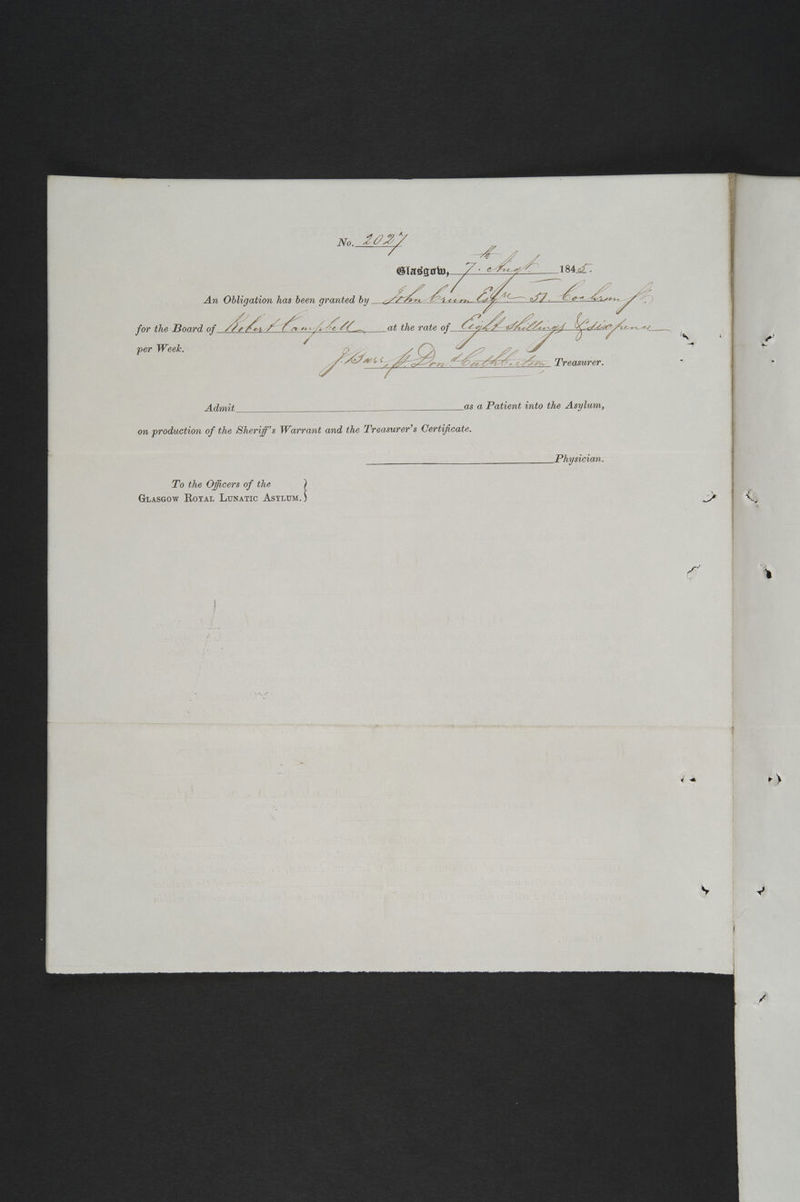 No. 2027
Glasgow, 7th Augt 1845.
An Obligation has been granted by John Crum Esqre 51. Cochran St.
for the Board of Robert Campbell at the rate of Eight Shillings & Sixpence
per Week.
J Barr, p. Don d Cuthbertson Treasurer.
Admit as a Patient into the Asylum,
on production of the Sheriff's Warrant and the Treasurer's Certificate.
Physician.
To the Officers of the
GLASGOW ROYAL LUNATIC ASYLUM.